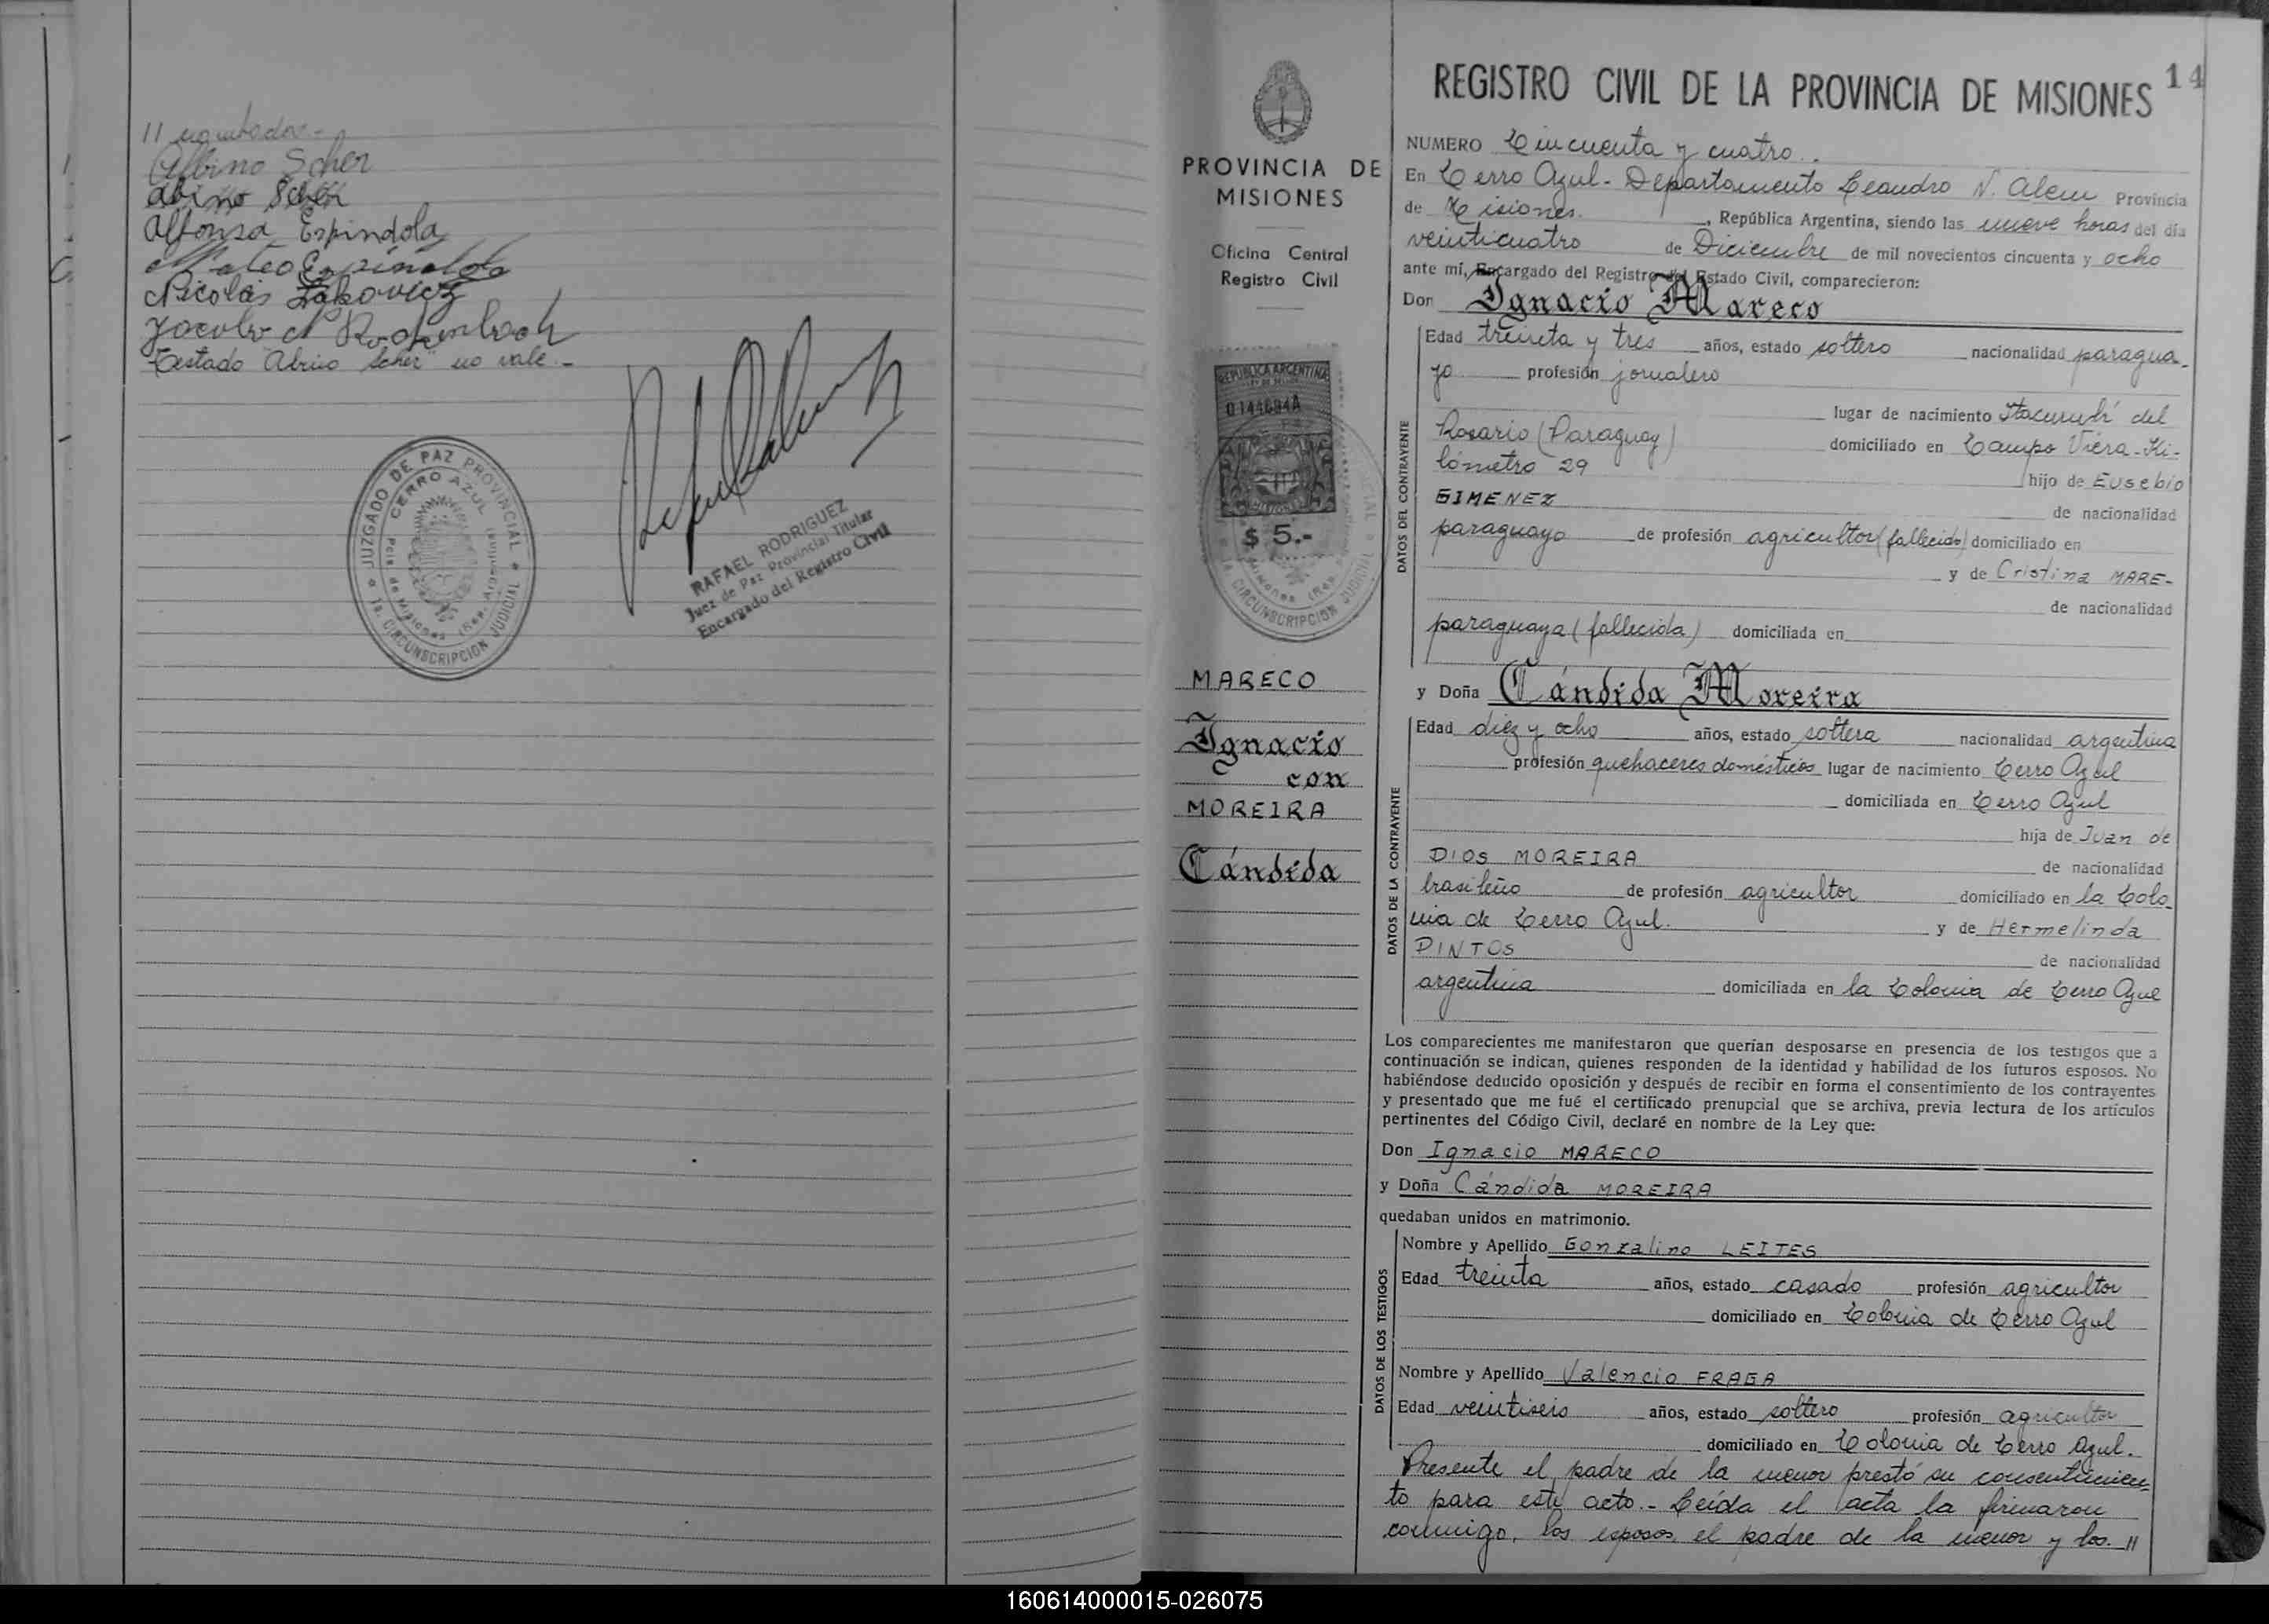 11 nombrados.-
Albino Scher
Abino Scher
Alfonsa Espindola
Mateo Espindola
Nicolás
Jacobo
Testado "Abino Scher" no vale.-
JUZGADO DE PAZ PROVINCIAL
CERRO AZUL
Pcia. de Misiones (Rep. Argentina)
1a. CIRCUNSCRIPCION JUDICIAL
RAFAEL RODRIGUEZ
Juez de Paz Provincial Titular
Encargado del Registro Civil
PROVINCIA DE
MISIONES
Oficina Central
Registro Civil
REPUBLICA ARGENTINA
0144684A
$ 5.-
CIRCUNSCRIPCION JUDICIAL
MARECO
Ignacio
con
MOREIRA
Cándida
14
REGISTRO CIVIL DE LA PROVINCIA DE MISIONES
NUMERO Cincuenta y cuatro.
En Cerro Azul - Departamento Leandro N. Alem Provincia
de Misiones. , República Argentina, siendo las nueve horas del día
veinticuatro de Diciembre de mil novecientos cincuenta y ocho
ante mí, Encargado del Registro del Estado Civil, comparecieron:
Don Ignacio Mareco
DATOS DEL CONTRAYENTE
Edad treinta y tres años, estado soltero nacionalidad paragua-
yo profesión jornalero
lugar de nacimiento Itacurubí del
Rosario (Paraguay) domiciliado en Campo Viera - Ki-
lómetro 29 hijo de Eusebio
GIMENEZ de nacionalidad
paraguayo de profesión agricultor (fallecido) domiciliado en
y de Cristina MARE-
de nacionalidad
paraguaya (fallecida) domiciliada en
y Doña Cándida Moreira
DATOS DE LA CONTRAYENTE
Edad diez y ocho años, estado soltera nacionalidad argentina
profesión quehaceres domésticos lugar de nacimiento Cerro Azul
domiciliada en Cerro Azul
hija de Juan de
DIOS MOREIRA de nacionalidad
brasileño de profesión agricultor domiciliado en la Colo-
nia de Cerro Azul. y de Hermelinda
PINTOS de nacionalidad
argentina domiciliada en la Colonia de Cerro Azul
Los comparecientes me manifestaron que querían desposarse en presencia de los testigos que a
continuación se indican, quienes responden de la identidad y habilidad de los futuros esposos. No
habiéndose deducido oposición y después de recibir en forma el consentimiento de los contrayentes
y presentado que me fué el certificado prenupcial que se archiva, previa lectura de los artículos
pertinentes del Código Civil, declaré en nombre de la Ley que:
Don Ignacio MARECO
y Doña Cándida MOREIRA
quedaban unidos en matrimonio.
DATOS DE LOS TESTIGOS
Nombre y Apellido Gonzalino LEITES
Edad treinta años, estado casado profesión agricultor
domiciliado en Colonia de Cerro Azul
Nombre y Apellido Valencio FRAGA
Edad veintiseis años, estado soltero profesión agricultor
domiciliado en Colonia de Cerro Azul.
Presente el padre de la menor prestó su consentimien-
to para este acto.- Leída el acta la firmaron
conmigo, los esposos, el padre de la menor y los. 11
160614000015-026075